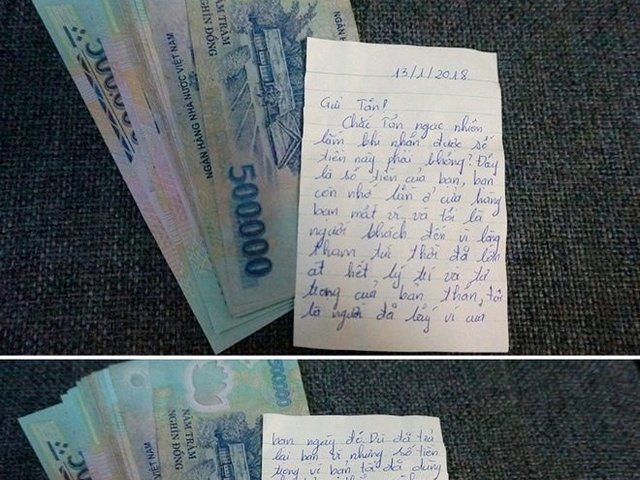 500.000
NGÂN HÀNG NHÀ NƯỚC VIỆT NAM
NĂM TRĂM
NGHÌN ĐỒNG
NGÂN HÀNG
500000
13/1/2018
Gửi Tấn!
Chắc Tấn ngạc nhiên
lắm khi nhận được số
tiền này phải không? Đây
là số tiền của bạn, bạn
còn nhớ lần ở cửa hàng
bạn mất ví và tôi là
người khách đến vì lòng
tham tức thời đã lấn
át hết lý trí và tự
trọng của bản thân, tôi
là người đã lấy ví của
NĂM TRĂM
NGHÌN ĐỒNG
bạn ngày đó. Dù đã trả
lại bạn ví nhưng số tiền
trong ví bạn tôi đã dùng